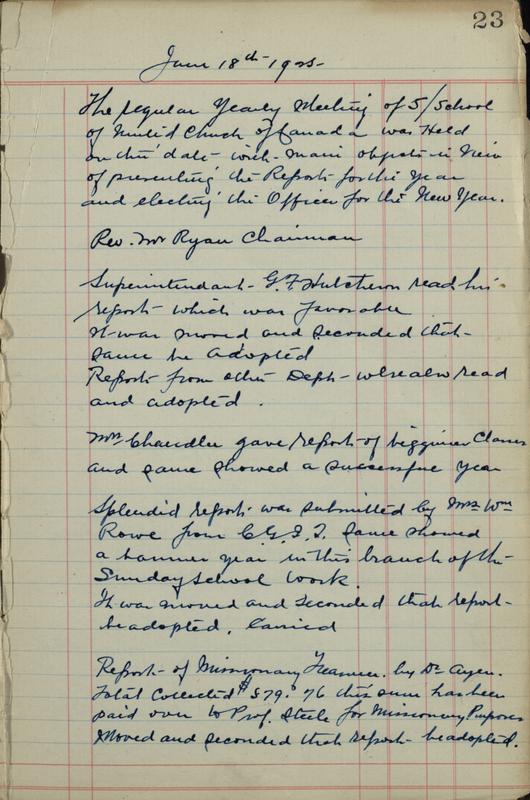 23
June 18th 1925
The regular Yearly Meeting of S/School
of United Church of Canada was Held
on this date with main objects in View
of presenting the Reports for the Year
and electing the Officer for the New Year.
Rev. Mr Ryan Chairman
Superintendant G.F. Hutcheson read his
report which was favorable
it was moved and seconded that
same be adopted
Reports from other Depts were also read
and adopted.
Mrs Chandler gave report of bigginer Classes
and same showed a successful year
Splendid report was submitted by Mrs Wm
Rowe from C.G.I.T. same showed
a banner year in this branch of the
Sunday School work.
It was moved and seconded that report
be adopted. Carried
Report of Missionary Treasurer by Dr
Total Collected $579.76 this sum has been
paid over to Prof. Steele for Missionary Purposes
Moved and seconded that report be adopted.